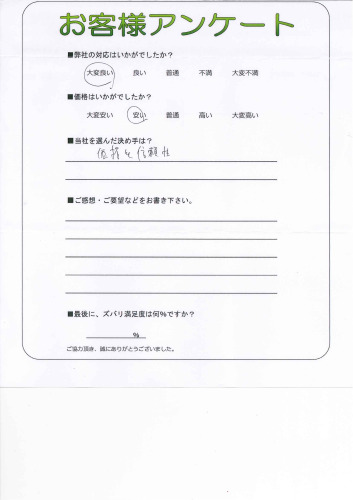 お客様アンケート
■弊社の対応はいかがでしたか？
大変良い 良い 普通 不満 大変不満
■価格はいかがでしたか？
大変安い 安い 普通 高い 大変高い
■当社を選んだ決め手は？
価格と信頼性
■ご感想・ご要望などをお書き下さい。
■最後に、ズバリ満足度は何%ですか？
%
ご協力頂き、誠にありがとうございました。